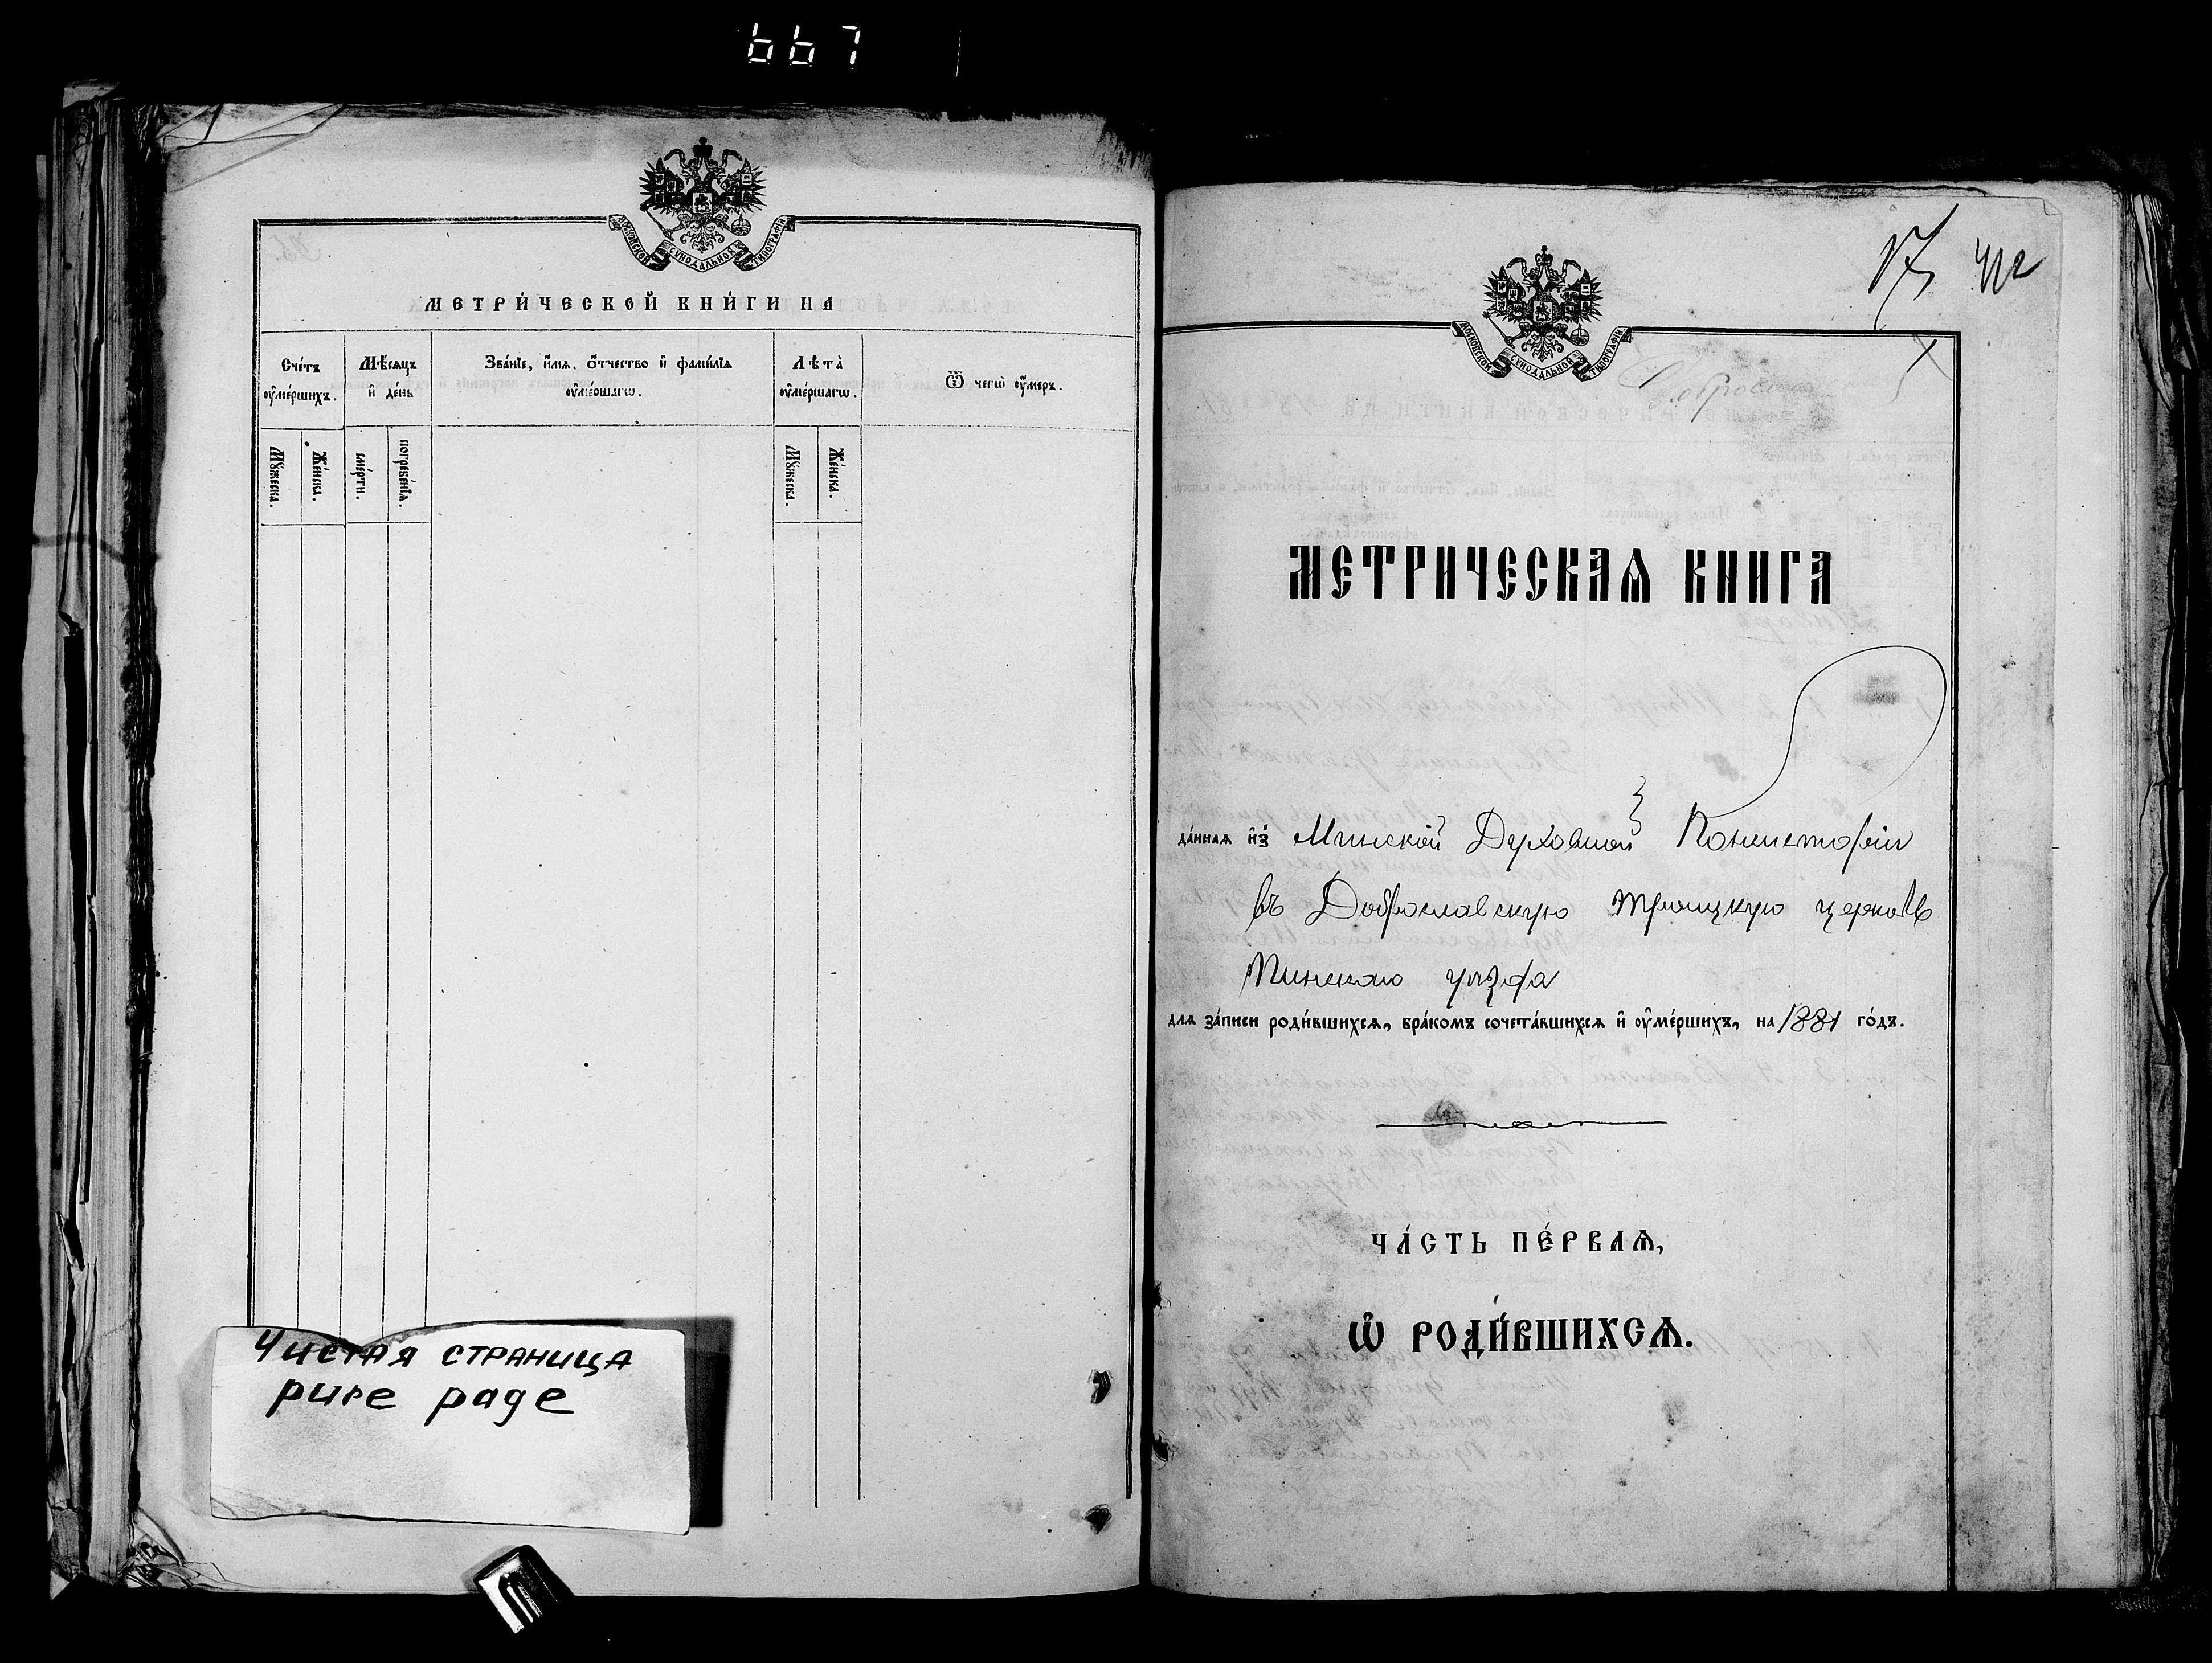 667
МОСКОВСКОЙ СѴНОДАЛЬНОЙ ТИПОГРАФІИ
МЕТРИ́ЧЕСКОЙ КНИ́ГИ НА
Сче́тъ ᲂу҆ме́ршихъ.
Мѣ́сѧцъ и҆ де́нь
Зва́нїе, и҆́мѧ, ѻ҆́тчество и҆ фами́лїѧ ᲂу҆ме́ршагѡ.
Лѣ̀та ᲂу҆ме́ршагѡ.
Ѿ чегѡ̀ ᲂу҆́меръ.
Мꙋ́жеска.
Же́нска.
сме́рти.
погребе́нїѧ.
Мꙋ́жеска.
Же́нска.
Чистая страница
pure page
17 412
МОСКОВСКОЙ СѴНОДАЛЬНОЙ ТИПОГРАФІИ
МЕТРИЧЕСКАѦ КНИГА
да́ннаѧ и҆з̾ Минской Духовной Консисторіи
въ Доброславскую Троицкую церковь
Пинскаго уѣзда
длѧ за́писи роди́вшихсѧ, бра́комъ сочета́вшихсѧ и҆ ᲂу҆ме́ршихъ, на 1881 го́дъ.
ЧА́СТЬ ПЕ́РВАѦ,
Ѡ҆ РОДИ́ВШИХСѦ.